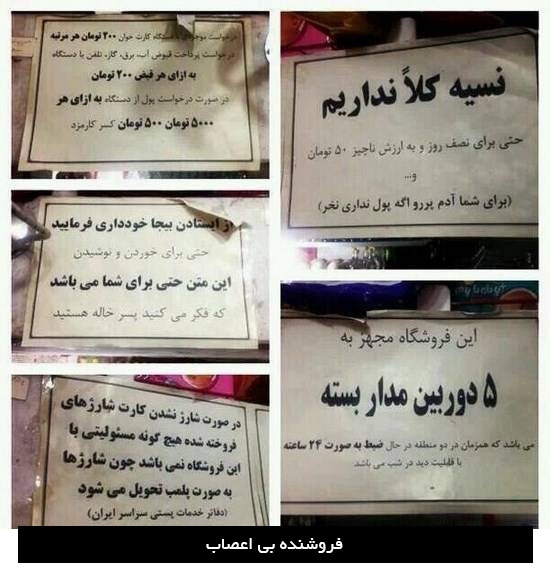 درخواست موجودی با دستگاه کارت خوان ۲۰۰ تومان هر مرتبه
درخواست پرداخت قبوض آب، برق، گاز، تلفن با دستگاه
به ازای هر قبض ۲۰۰ تومان
در صورت درخواست پول از دستگاه به ازای هر
۵۰۰۰ تومان ۵۰۰ تومان کسر کارمزد
نسیه کلاً نداریم
حتی برای نصف روز و به ارزش ناچیز ۵۰ تومان
و...
(برای شما آدم پررو اگه پول نداری نخر)
از ایستادن بیجا خودداری فرمایید
حتی برای خوردن و نوشیدن
این متن حتی برای شما می باشد
که فکر می کنید پسر خاله هستید
این فروشگاه مجهز به
۵ دوربین مدار بسته
می باشد که همزمان در دو منطقه در حال ضبط به صورت ۲۴ ساعته
با قابلیت دید در شب می باشد
در صورت شارژ نشدن کارت شارژهای
فروخته شده هیچ گونه مسئولیتی با
این فروشگاه نمی باشد چون شارژها
به صورت پلمب تحویل می شود
(دفاتر خدمات پستی سراسر ایران)
فروشنده بی اعصاب